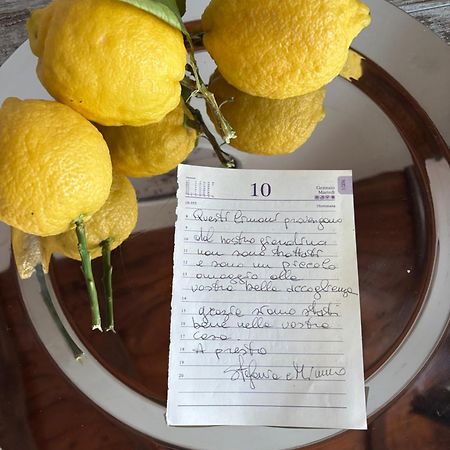 10
Gennaio
Martedì
Questi limoni provengono
dal nostro giardino
non sono trattati
e sono un piccolo
omaggio alla
vostra bella accoglienza
grazie siamo stati
bene nella vostra
casa.
A presto
Stefania e Mimmo